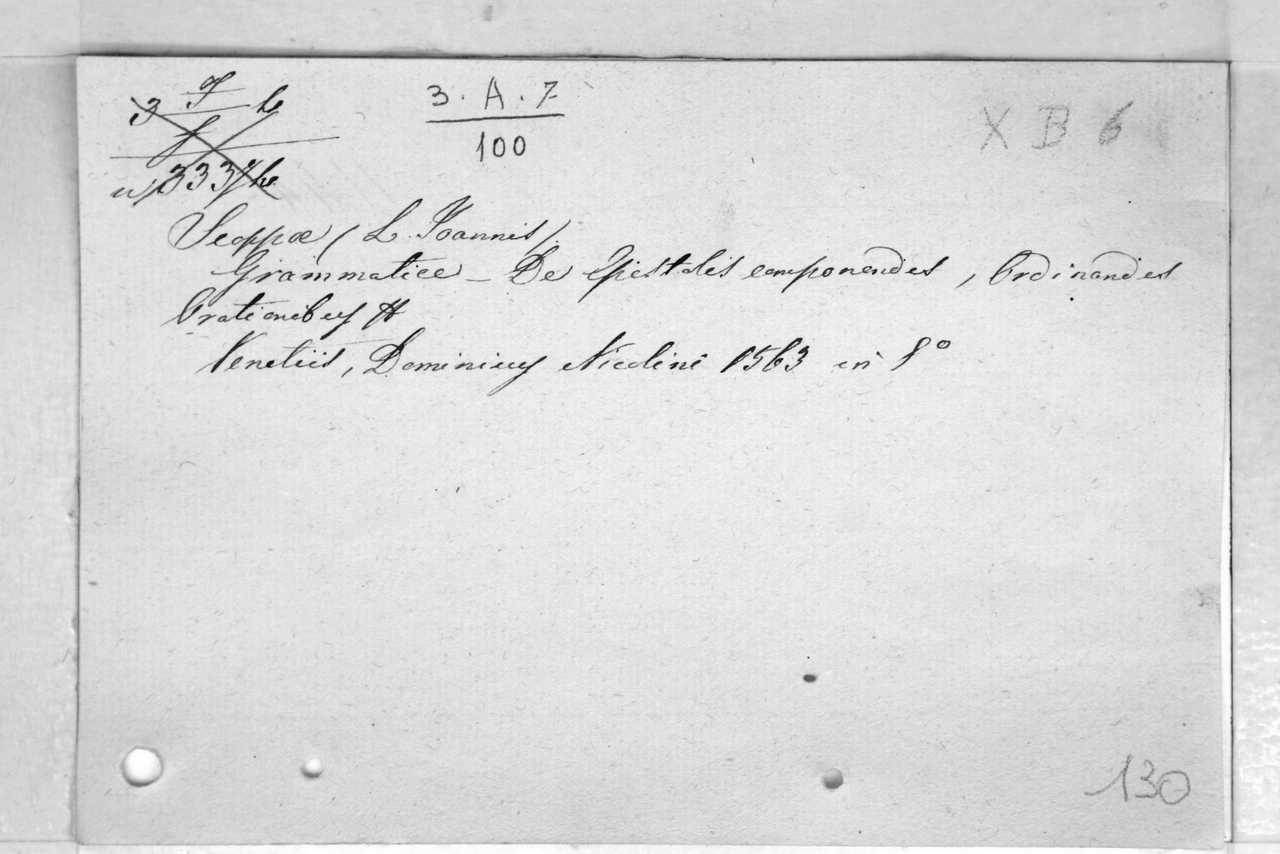 3 . A . 7
100
X B 6
Scoppæ ( L. Joannis )
Grammatice - De Epistolis componendis, Ordinandis
Orationibus
Venetiis, Dominicus Nicolini 1563 in 8°
130